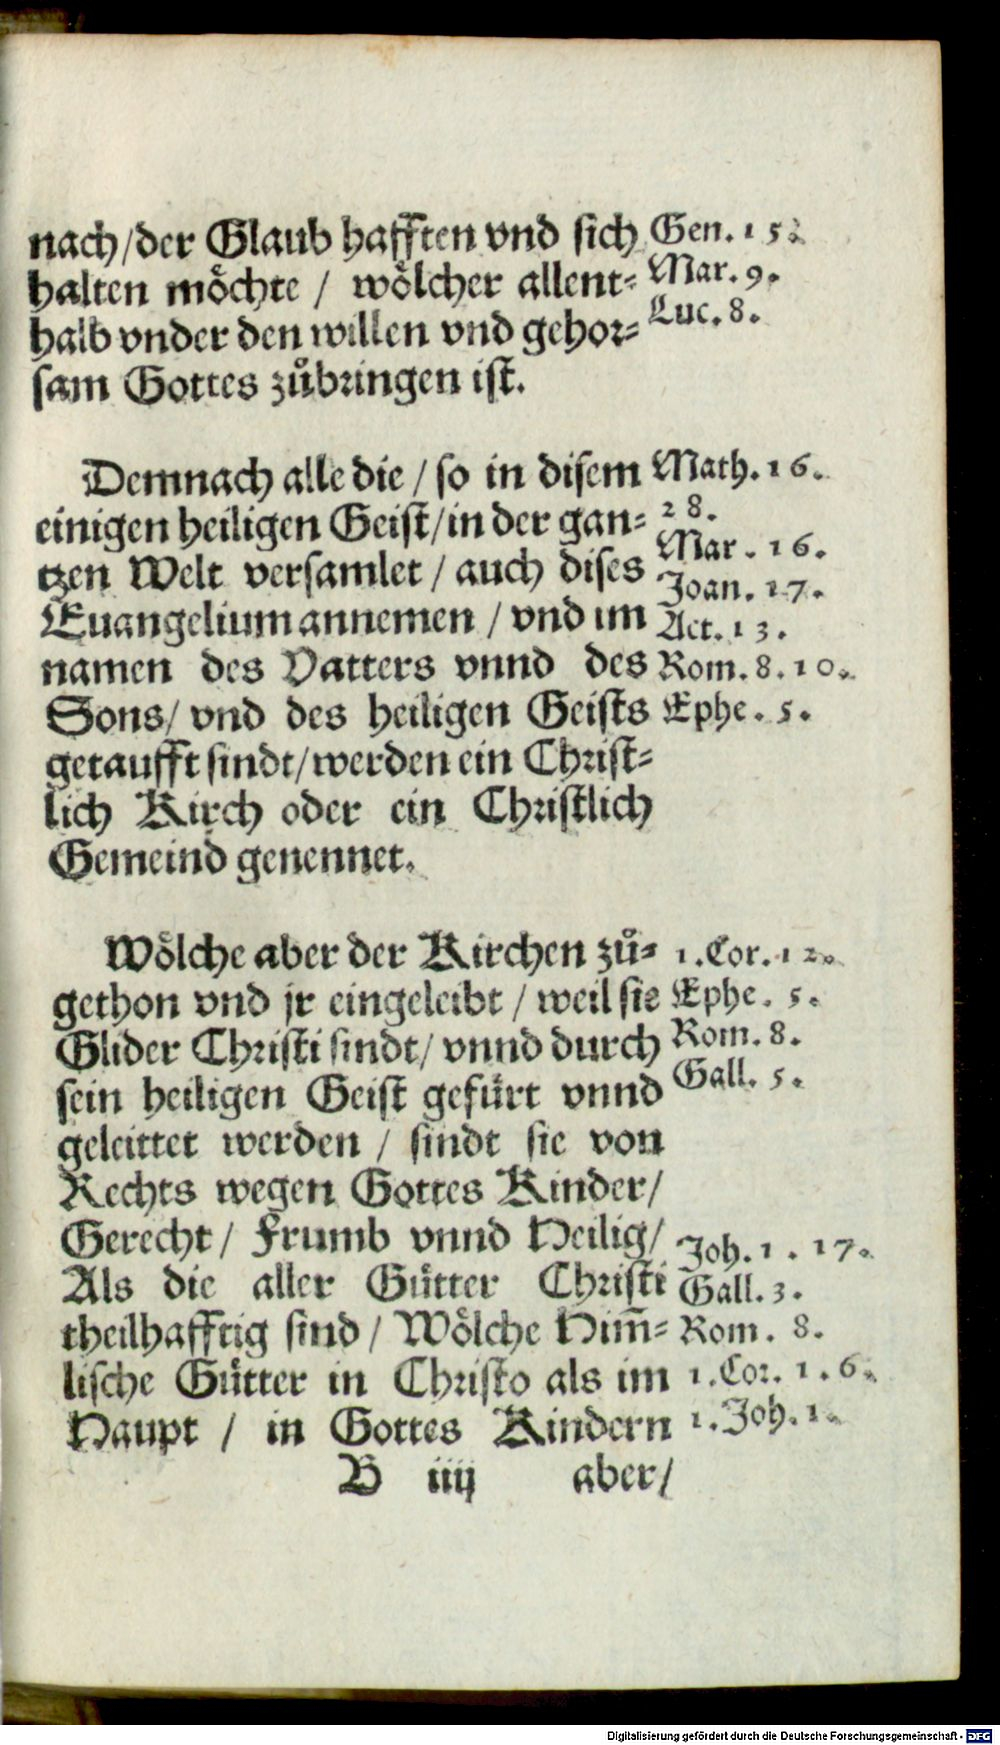 nach/der Glaub hafften vnd sich
halten möchte / wölcher allent=
halb vnder den willen vnd gehor=
sam Gottes zůbringen ist.
Gen. 15.
Mar. 9.
Luc. 8.
Demnach alle die / so in disem
einigen heiligen Geist/in der gan=
tzen Welt versamlet / auch dises
Euangelium annemen / vnd im
namen des Vatters vnnd des
Sons/ vnd des heiligen Geists
getaufft sindt/werden ein Christ=
lich Kirch oder ein Christlich
Gemeind genennet.
Math. 16.
28.
Mar. 16.
Joan. 17.
Act. 13.
Rom. 8. 10.
Ephe. 5.
Wölche aber der Kirchen zů=
gethon vnd jr eingeleibt / weil sie
Glider Christi sindt/ vnnd durch
sein heiligen Geist gefürt vnnd
geleittet werden / sindt sie von
Rechts wegen Gottes Kinder/
Gerecht / Frumb vnnd Heilig/
Als die aller Gütter Christi
theilhafftig sind / Wölche Him̄=
lische Gütter in Christo als im
Haupt / in Gottes Kindern
1. Cor. 12.
Ephe. 5.
Rom. 8.
Gall. 5.
Joh. 1. 17.
Gall. 3.
Rom. 8.
1. Cor. 1. 6.
1. Joh. 1.
B iiij aber/
Digitalisierung gefördert durch die Deutsche Forschungsgemeinschaft - DFG